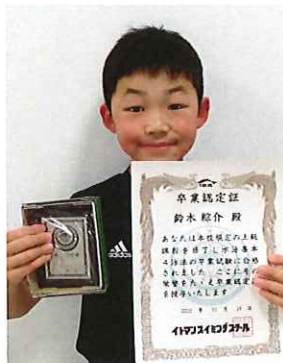 卒業認定証
鈴木綜介 殿
あなたは本校規定の上級
課程を修了し水泳基本
4泳法の卒業試験に合格
されました ここにその
栄誉をたゝえ卒業認定証
を授与いたします
イトマンスイミングスクール
adidas